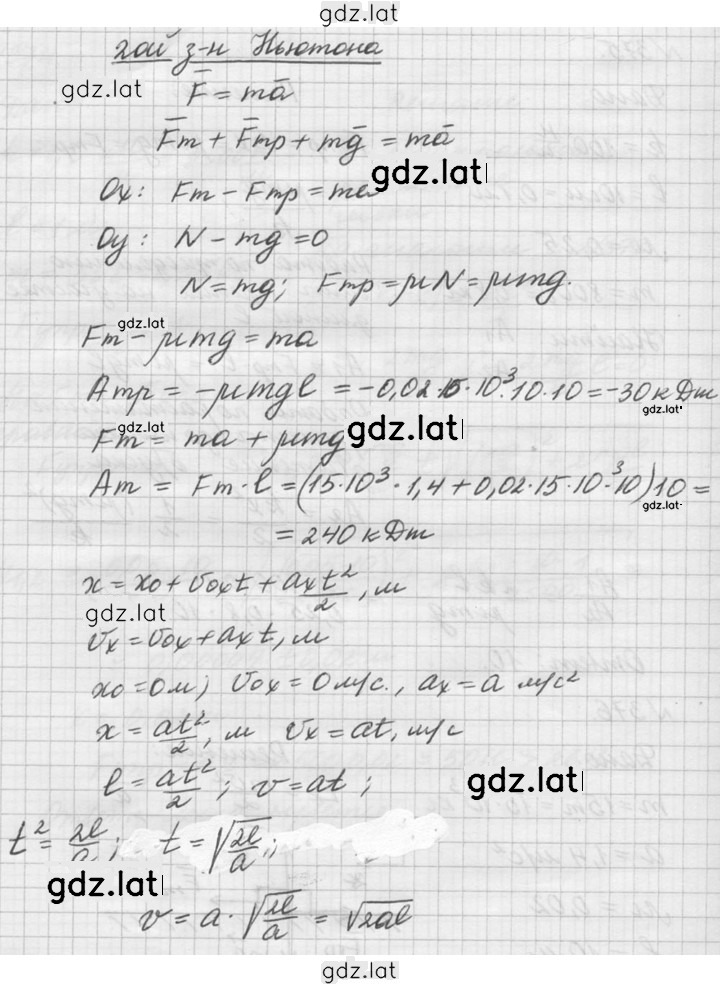 gdz.lat
2ой з-н Ньютона
gdz.lat
F̄ = mā
F̄т + F̄тр + mḡ = mā
gdz.lat
Ox: Fт − Fтр = ma
Oy: N − mg = 0
N = mg; Fтр = μN = μmg.
gdz.lat
Fт − μmg = ma
Aтр = −μmgl = −0,02·15·10³·10·10 = −30 кДж
gdz.lat
gdz.lat
Fт = ma + μmg
Aт = Fт·l = (15·10³·1,4+0,02·15·10³·10)10 =
gdz.lat
= 240 кДж
x = x₀ + v₀ₓt + aₓt²/2, м
gdz.lat
vₓ = v₀ₓ + aₓt, м
x₀ = 0 м; v₀ₓ = 0 м/с., aₓ = a м/с²
x = at²/2, м vₓ = at, м/с
l = at²/2; v = at;
gdz.lat
t² = 2l/a; t = √(2l/a);
gdz.lat
v = a · √(2l/a) = √(2al)
gdz.lat